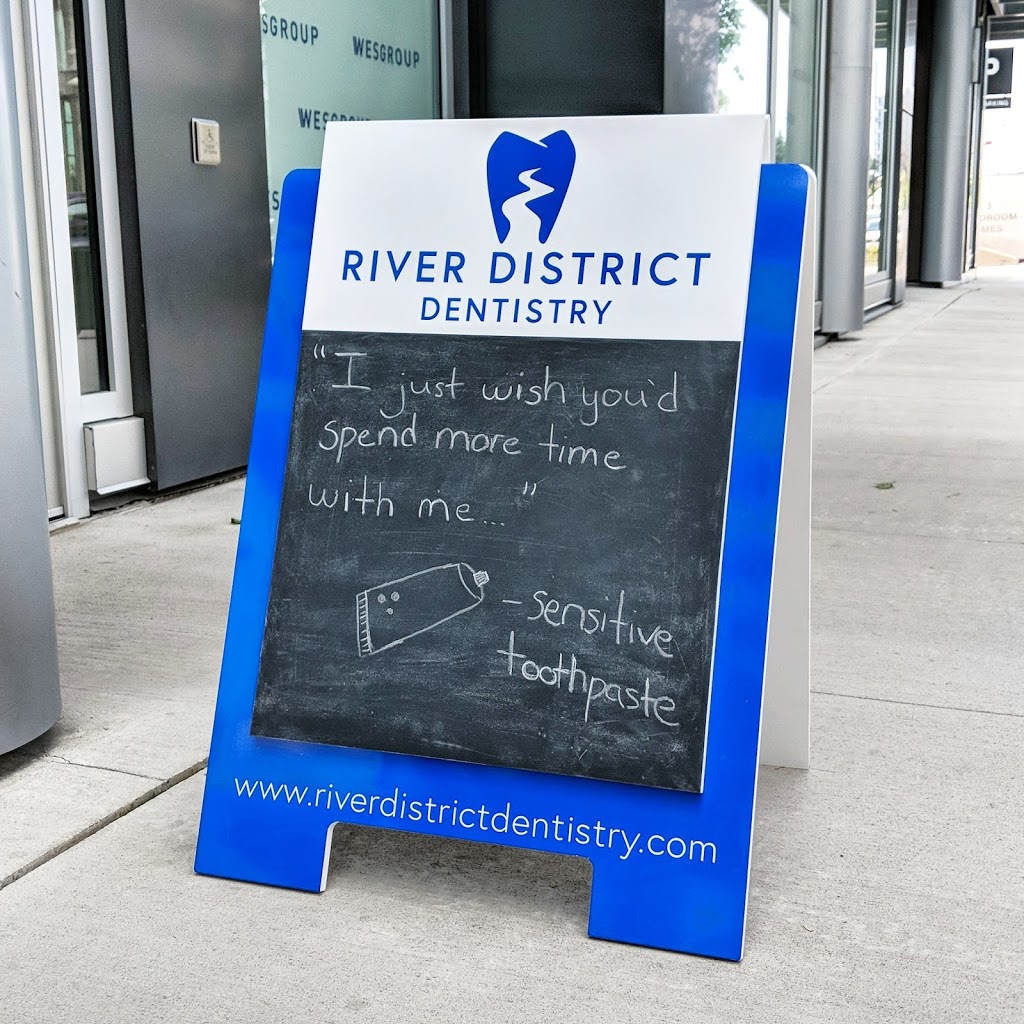 SGROUP
WESGROUP
WES
RIVER DISTRICT
DENTISTRY
"I just wish you'd
spend more time
with me..."
-Sensitive
toothpaste
www.riverdistrictdentistry.com
P